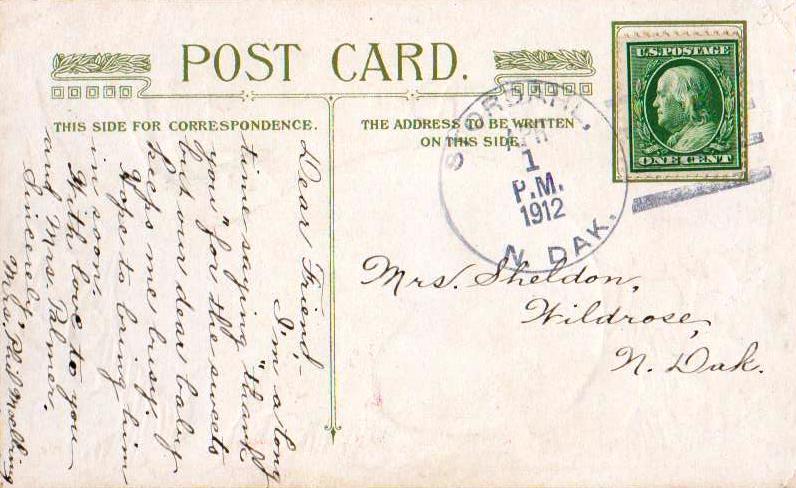 POST CARD.
THIS SIDE FOR CORRESPONDENCE.
THE ADDRESS TO BE WRITTEN
ON THIS SIDE.
U.S. POSTAGE
ONE CENT
APR
1
P.M.
1912
N. DAK.
Dear Friend,-
I'm a long
time saying "thank
you" for the sweets
but our dear baby
keeps me busy.
Hope to bring him
in soon.
With love to you
and Mrs. Palmer,
Sincerely,
Mrs. Phil
Mrs. Sheldon,
Wildrose,
N. Dak.